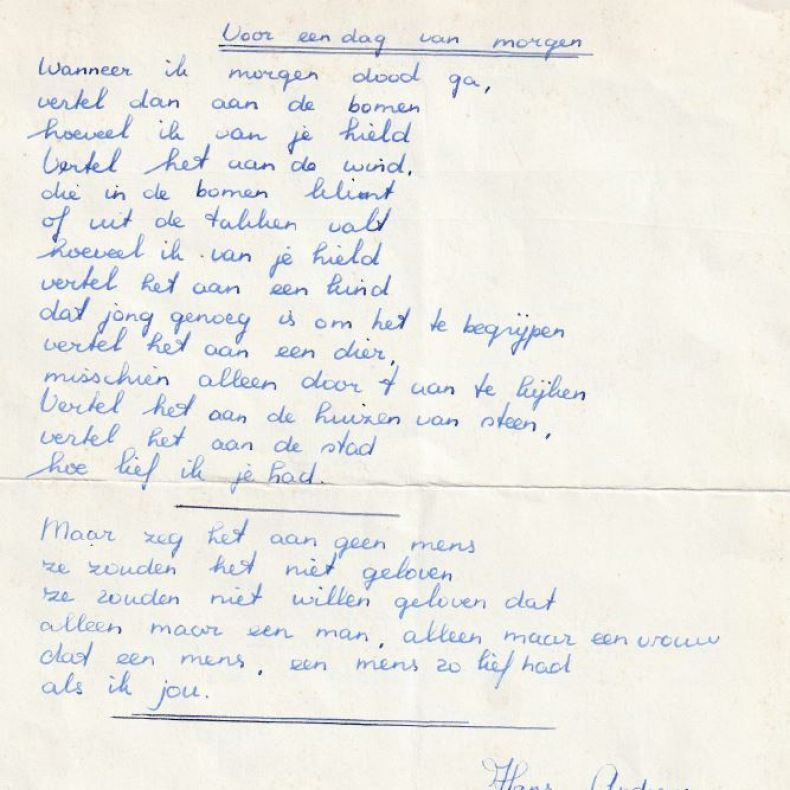 Voor een dag van morgen
Wanneer ik morgen dood ga,
vertel dan aan de bomen
hoeveel ik van je hield
Vertel het aan de wind,
die in de bomen klimt
of uit de takken valt
hoeveel ik van je hield
vertel het aan een kind
dat jong genoeg is om het te begrijpen
vertel het aan een dier,
misschien alleen door 't aan te kijken
Vertel het aan de huizen van steen,
vertel het aan de stad
hoe lief ik je had.
Maar zeg het aan geen mens
ze zouden het niet geloven
ze zouden niet willen geloven dat
alleen maar een man, alleen maar een vrouw
dat een mens, een mens zo lief had
als ik jou.
Hans